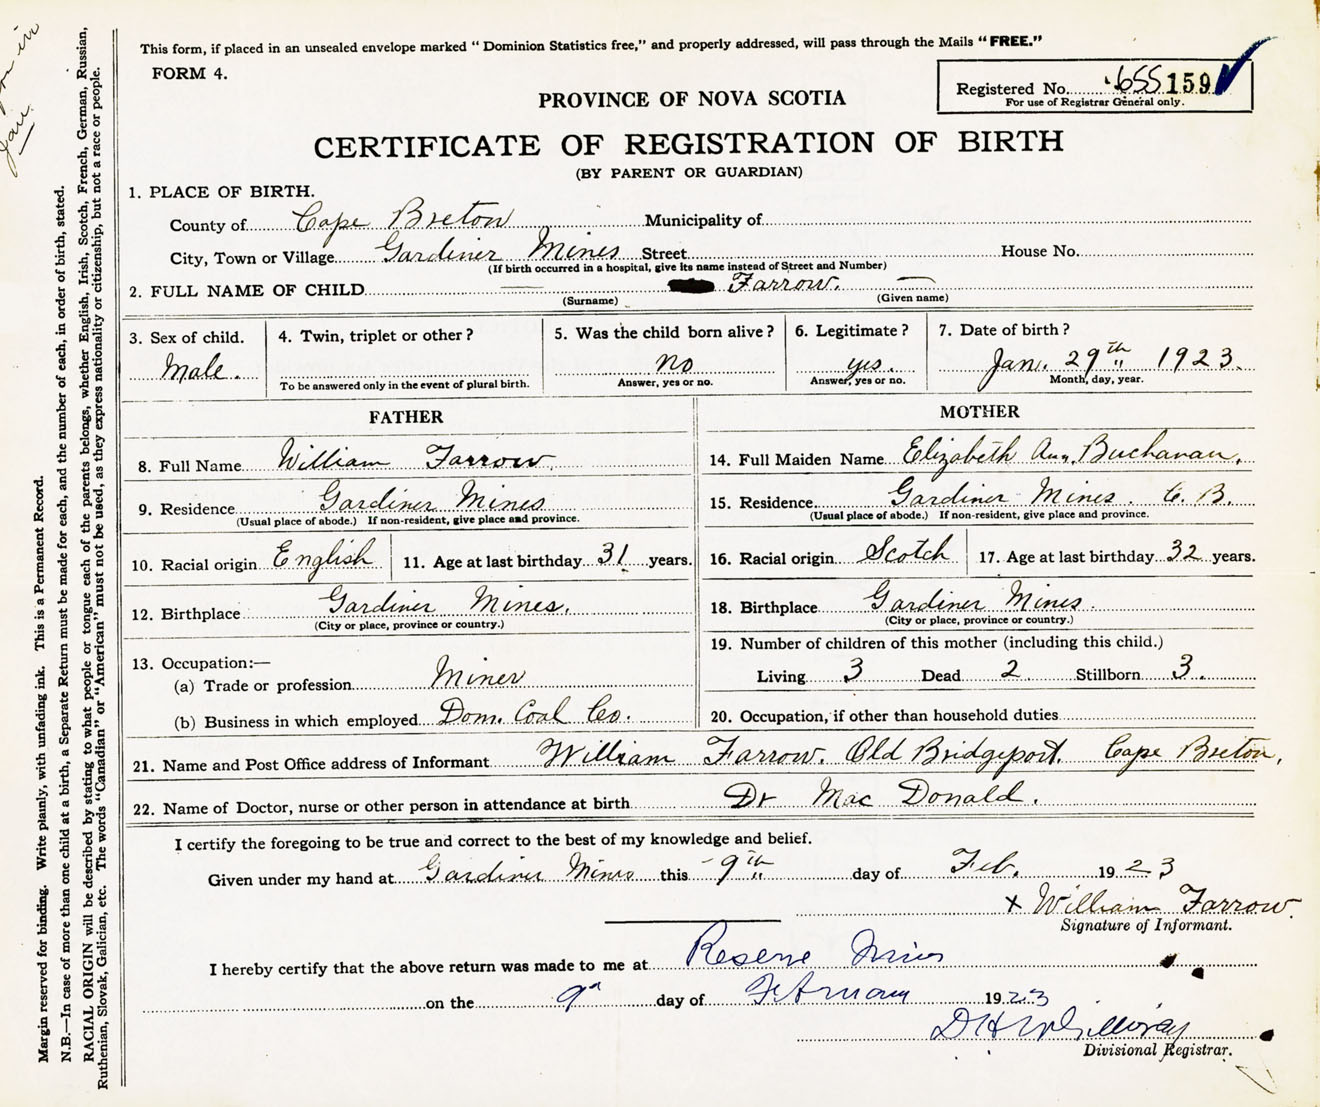 This form, if placed in an unsealed envelope marked "Dominion Statistics free," and properly addressed, will pass through the Mails "FREE."
FORM 4.
Registered No. 655 159
For use of Registrar General only.
PROVINCE OF NOVA SCOTIA
CERTIFICATE OF REGISTRATION OF BIRTH
(BY PARENT OR GUARDIAN)
1. PLACE OF BIRTH.
County of Cape Breton Municipality of
City, Town or Village Gardiner Mines Street House No.
(If birth occurred in a hospital, give its name instead of Street and Number)
2. FULL NAME OF CHILD — Farrow. —
(Surname) (Given name)
3. Sex of child. 4. Twin, triplet or other? 5. Was the child born alive? 6. Legitimate? 7. Date of birth?
Male. no yes. Jan. 29th 1923.
To be answered only in the event of plural birth. Answer, yes or no. Answer, yes or no. Month, day, year.
FATHER MOTHER
8. Full Name William Farrow. 14. Full Maiden Name Elizabeth Ann Buchanan.
9. Residence Gardiner Mines 15. Residence Gardiner Mines. C. B.
(Usual place of abode.) If non-resident, give place and province. (Usual place of abode.) If non-resident, give place and province.
10. Racial origin English 11. Age at last birthday 31 years. 16. Racial origin Scotch 17. Age at last birthday 32 years.
12. Birthplace Gardiner Mines. 18. Birthplace Gardiner Mines.
(City or place, province or country.) (City or place, province or country.)
19. Number of children of this mother (including this child.)
13. Occupation:—
Living 3 Dead 2 Stillborn 3.
(a) Trade or profession Miner
(b) Business in which employed Dom. Coal Co. 20. Occupation, if other than household duties
21. Name and Post Office address of Informant William Farrow. Old Bridgeport. Cape Breton.
22. Name of Doctor, nurse or other person in attendance at birth Dr Mac Donald.
I certify the foregoing to be true and correct to the best of my knowledge and belief.
Given under my hand at Gardiner Mines this 9th day of Feb. 1923
x William Farrow.
Signature of Informant.
I hereby certify that the above return was made to me at Reserve Mines
on the 9th day of February 1923
Divisional Registrar.
Margin reserved for binding. Write plainly, with unfading ink. This is a Permanent Record.
N.B.—In case of more than one child at a birth, a Separate Return must be made for each, and the number of each, in order of birth, stated.
RACIAL ORIGIN will be described by stating to what people or tongue each of the parents belongs, whether English, Irish, Scotch, French, German, Russian,
Ruthenian, Slovak, Galician, etc. The words "Canadian" or "American" must not be used, as they express nationality or citizenship, but not a race or people.